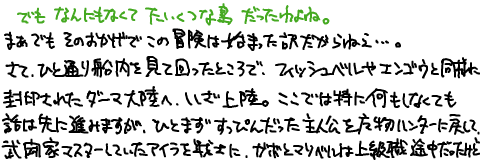 でも なんにもなくて たいくつな島 だったわよね。
まぁでも そのおかげで この冒険は始まった訳だからねぇ…。
さて、ひと通り船内を見て回ったところで、フィッシュベルやエンゴウと同様に
封印されたダーマ大陸へ、いざ上陸。ここでは特に何もしなくても
話は先に進みますが、ひとまず すっぴんだった主人公を魔物ハンターに戻して、
武闘家マスターしていたアイラを戦士に、ガボとマリベルは上級職途中だったけど